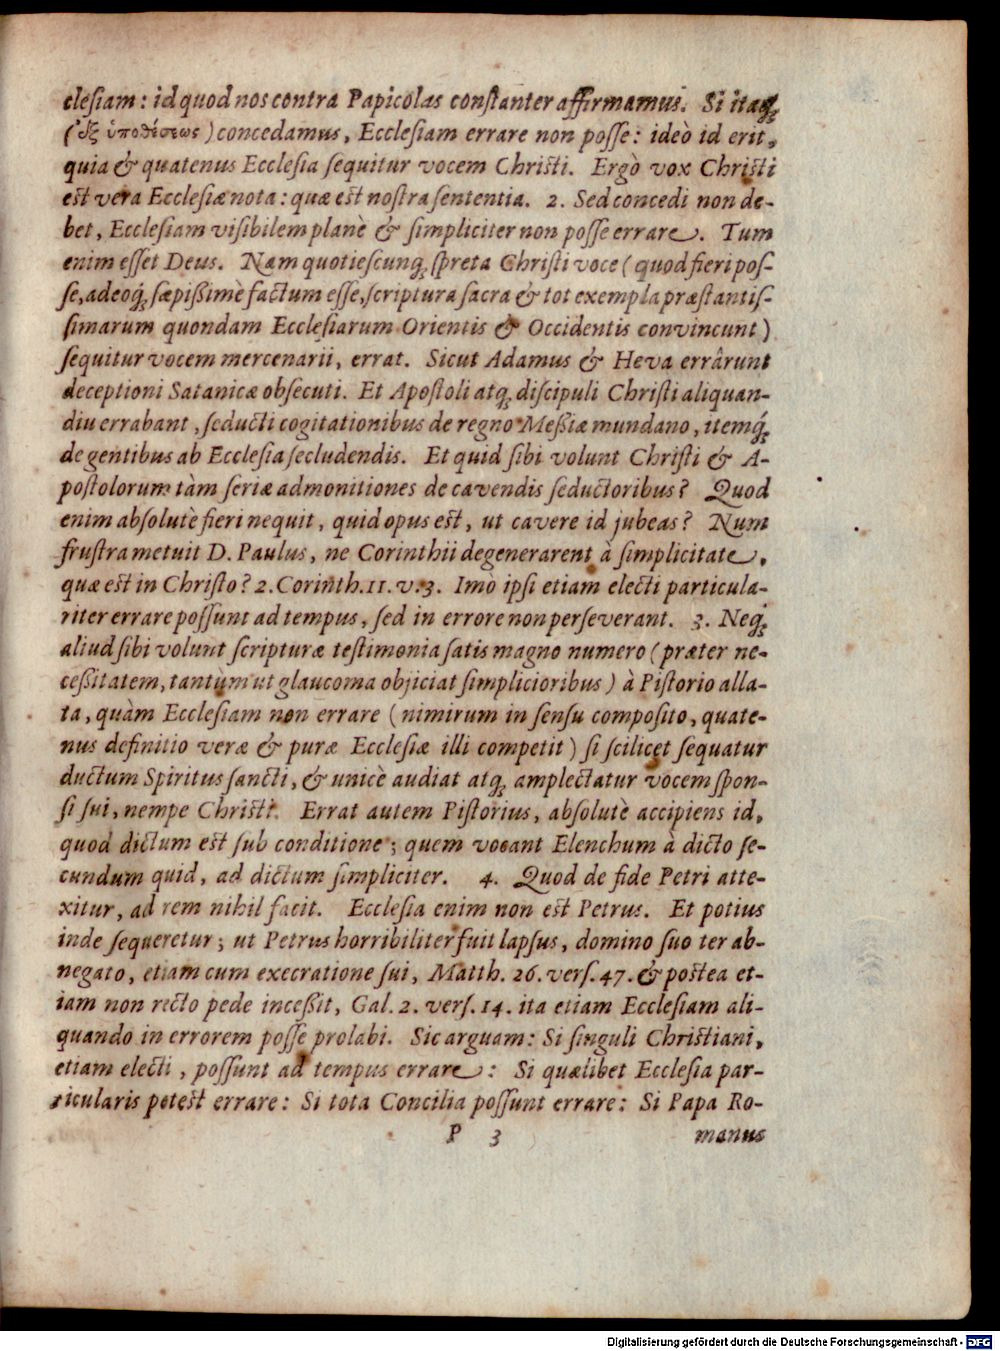 clesiam: id quod nos contra Papicolas constanter affirmamus. Si itaq;
(ἐξ ὑποθέσεως) concedamus, Ecclesiam errare non posse: ideò id erit,
quia & quatenus Ecclesia sequitur vocem Christi. Ergò vox Christi
est vera Ecclesiæ nota: quæ est nostra sententia. 2. Sed concedi non de-
bet, Ecclesiam visibilem planè & simpliciter non posse errare. Tum
enim esset Deus. Nam quotiescunq; spreta Christi voce (quod fieri pos-
se, adeoq́; sæpißimè factum esse, scriptura sacra & tot exempla præstantis-
simarum quondam Ecclesiarum Orientis & Occidentis convincunt)
sequitur vocem mercenarii, errat. Sicut Adamus & Heva errârunt
deceptioni Satanicæ obsecuti. Et Apostoli atq; discipuli Christi aliquan-
diu errabant, seducti cogitationibus de regno Meßiæ mundano, itemq́;
de gentibus ab Ecclesia secludendis. Et quid sibi volunt Christi & A-
postolorum tàm seriæ admonitiones de cavendis seductoribus? Quod
enim absolutè fieri nequit, quid opus est, ut cavere id jubeas? Num
frustra metuit D. Paulus, ne Corinthii degenerarent à simplicitate,
quæ est in Christo? 2. Corinth. 11. v. 3. Imò ipsi etiam electi particula-
riter errare possunt ad tempus, sed in errore non perseverant. 3. Neq;
aliud sibi volunt scripturæ testimonia satis magno numero (præter ne-
ceßitatem, tantùm ut glaucoma objiciat simplicioribus) à Pistorio alla-
ta, quàm Ecclesiam non errare (nimirum in sensu composito, quate-
nus definitio veræ & puræ Ecclesiæ illi competit) si scilicet sequatur
ductum Spiritus sancti, & unicè audiat atq; amplectatur vocem spon-
si sui, nempe Christi. Errat autem Pistorius, absolutè accipiens id,
quod dictum est sub conditione; quem vocant Elenchum à dicto se-
cundum quid, ad dictum simpliciter. 4. Quod de fide Petri atte-
xitur, ad rem nihil facit. Ecclesia enim non est Petrus. Et potius
inde sequeretur; ut Petrus horribiliter fuit lapsus, domino suo ter ab-
negato, etiam cum execratione sui, Matth. 26. vers. 47. & postea et-
iam non recto pede inceßit, Gal. 2. vers. 14. ita etiam Ecclesiam ali-
quando in errorem posse prolabi. Sic arguam: Si singuli Christiani,
etiam electi, possunt ad tempus errare: Si quælibet Ecclesia par-
ticularis potest errare: Si tota Concilia possunt errare: Si Papa Ro-
P 3 manus
Digitalisierung gefördert durch die Deutsche Forschungsgemeinschaft - DFG